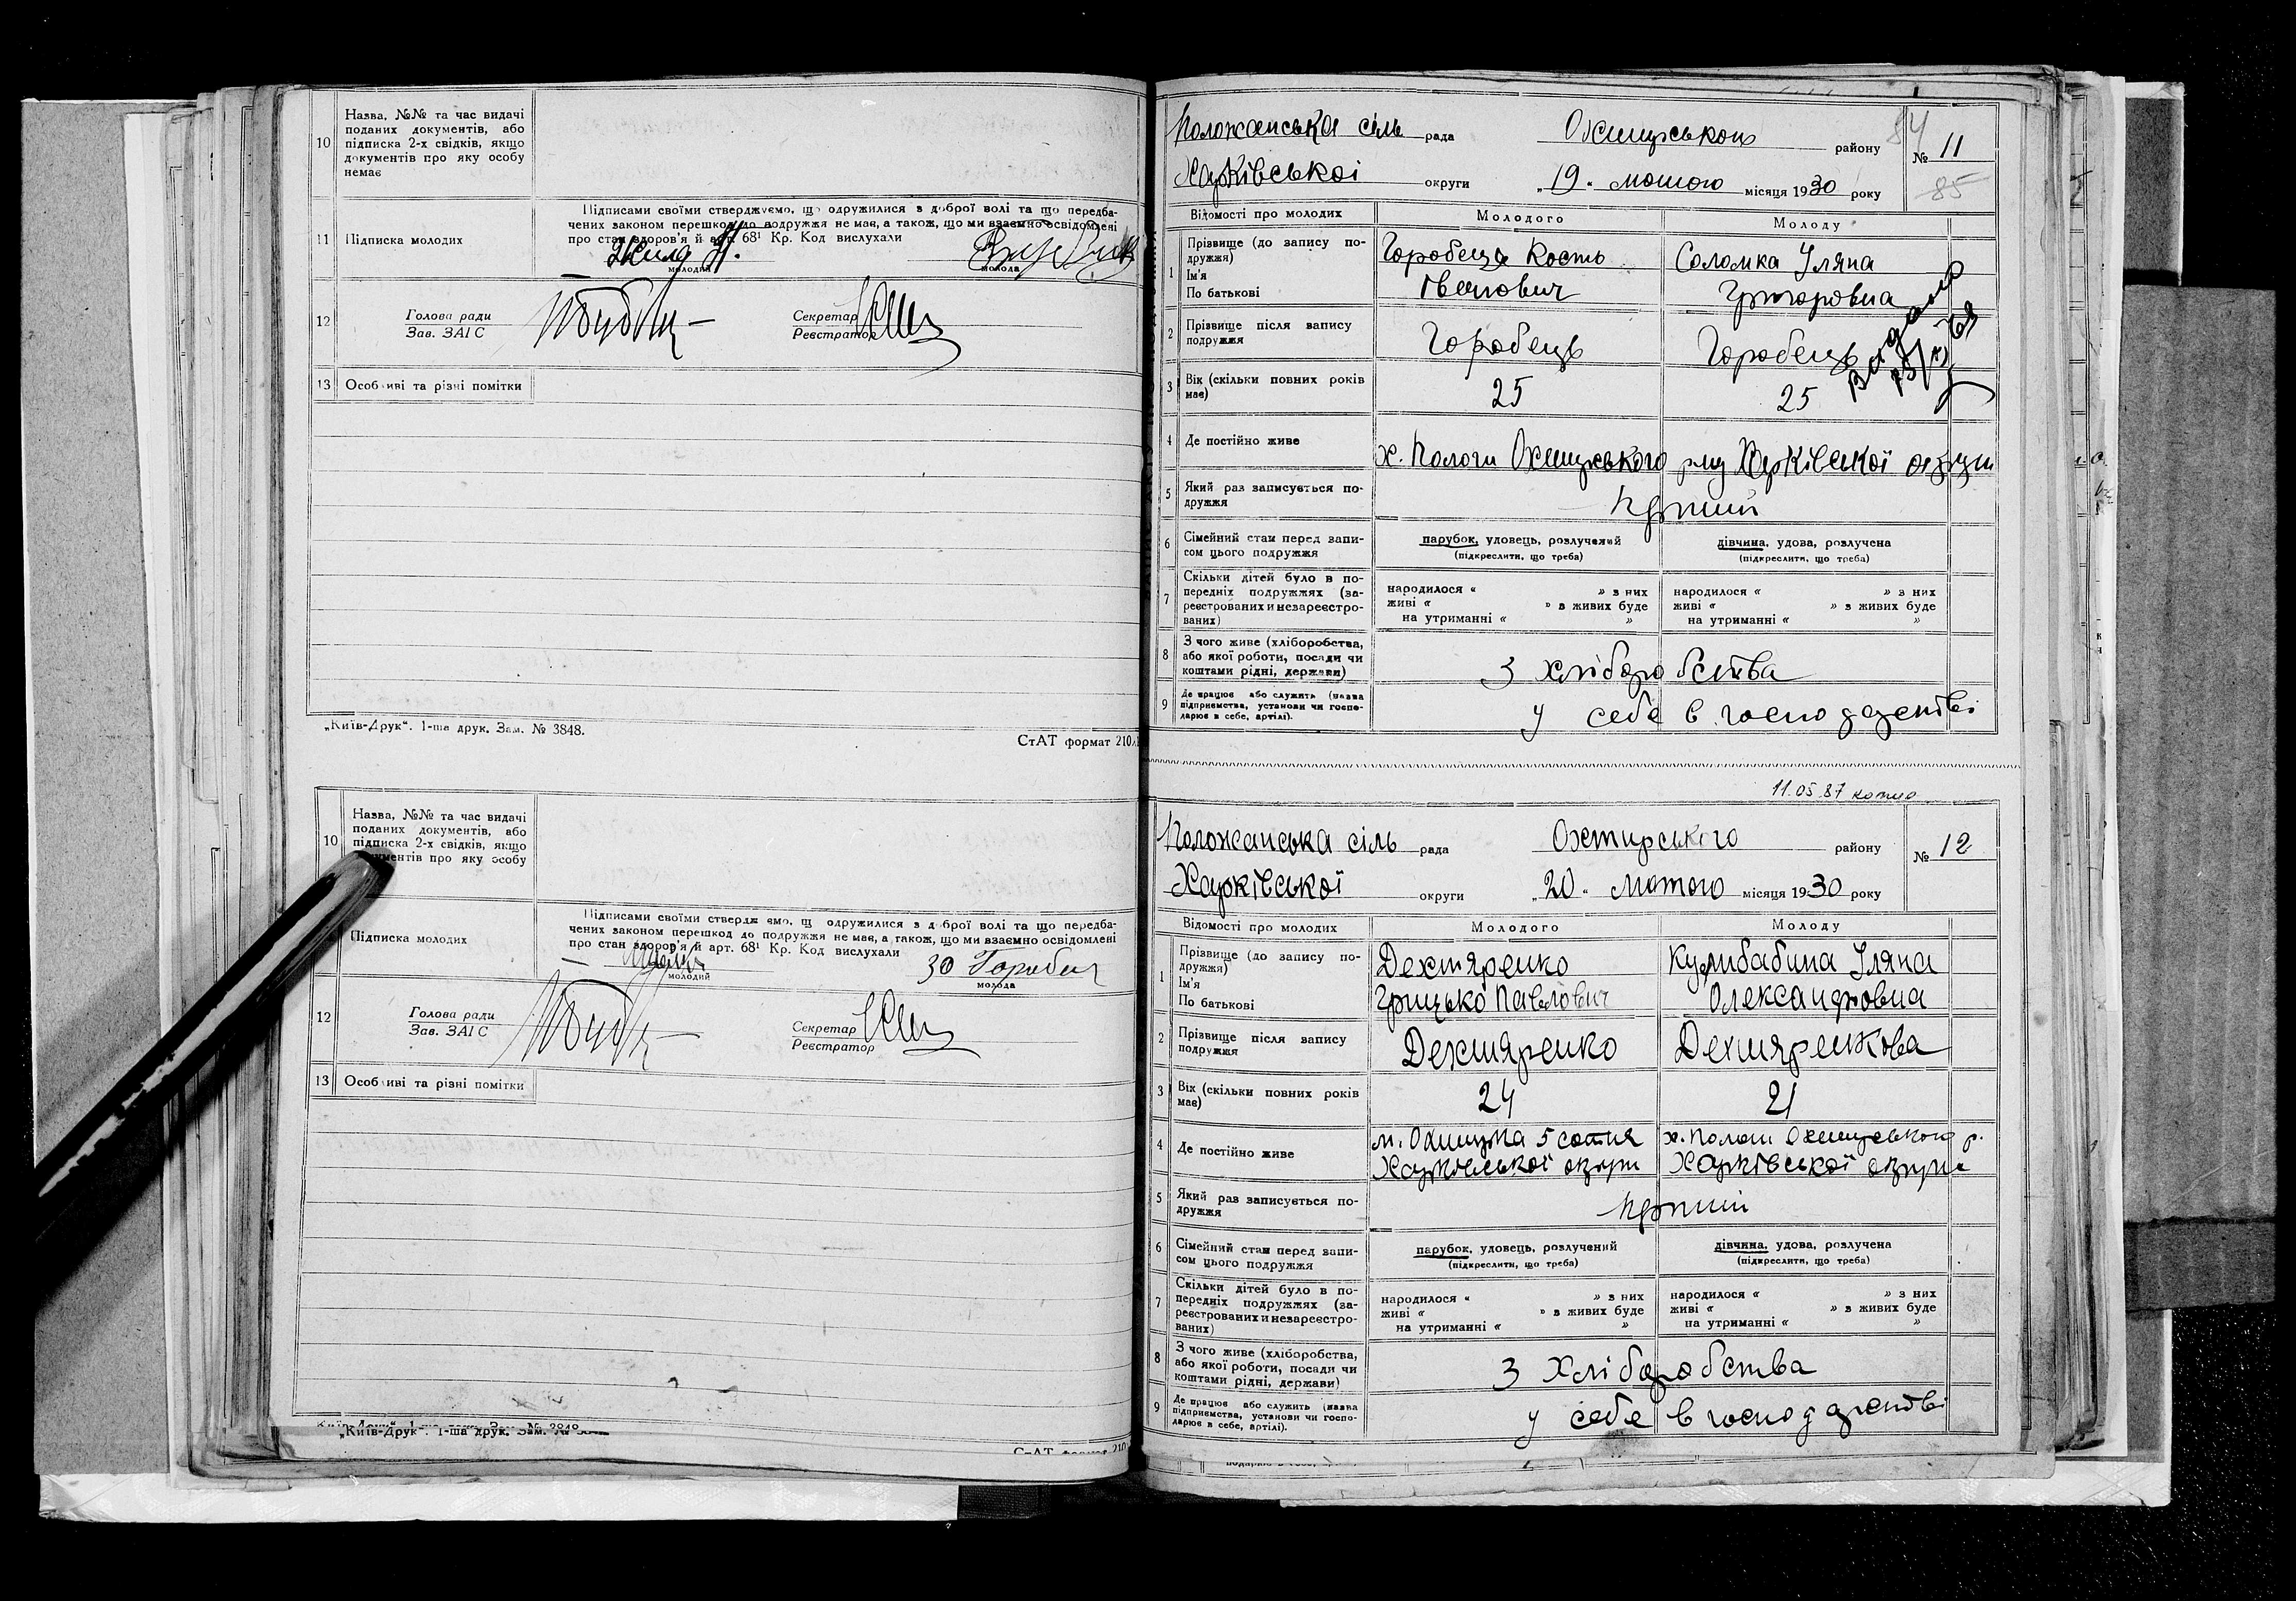 10 Назва, №№ та час видачі
поданих документів, або
підписка 2-х свідків, якщо
документів про яку особу
немає
11 Підписка молодих
Підписами своїми стверджуємо, що одружилися з доброї волі та що передба-
чених законом перешкод до подружжя не має, а також, що ми взаємно освідомлені
про стан здоров'я й арт. 68¹ Кр. Код вислухали
молодий
молода
12 Голова ради
Зав. ЗАГС
Секретар
Реєстратор
13 Особливі та різні помітки
„Київ-Друк“. 1-ша друк. Зам. № 3848.
СтАТ формат 210
10 Назва, №№ та час видачі
поданих документів, або
підписка 2-х свідків, якщо
документів про яку особу
Підписка молодих
Підписами своїми стверджуємо, що одружилися з доброї волі та що передба-
чених законом перешкод до подружжя не має, а також, що ми взаємно освідомлені
про стан здоров'я й арт. 68¹ Кр. Код вислухали
молодий
зо Горобец
молода
12 Голова ради
Зав. ЗАГС
Секретар
Реєстратор
13 Особливі та різні помітки
„Київ-Друк“. 1-ша друк. Зам. № 3848.
СтАТ формат 210
84
Положанська сіль рада Охтирського району № 11
Харківської округи „19“ лютого місяця 1930 року
85
Відомості про молодих Молодого Молоду
1 Прізвище (до запису по-
дружжя)
Ім'я
По батькові
Горобець Кость
Іванович
Соломка Уляна
Григоровна
2 Прізвище після запису
подружжя
Горобець
Горобець
3 Вік (скільки повних років
має)
25
25
4 Де постійно живе
х. Пологи Охтирського р-ну Харківської округи
5 Який раз записується по-
дружжя
перший
6 Сімейний стан перед запи-
сом цього подружжя
парубок, удовець, розлучений
(підкреслити, що треба)
дівчина, удова, розлучена
(підкреслити, що треба)
7 Скільки дітей було в по-
передніх подружжях (за-
реєстрованих и незареєстро-
ваних)
народилося « » з них
живі « » в живих буде
на утриманні « »
народилося « » з них
живі « » в живих буде
на утриманні « »
8 З чого живе (хліборобства,
або якої роботи, посади чи
коштами рідні, держави)
З хліборобства
9 Де працює або служить (назва
підприємства, установи чи госпо-
дарює в себе, артілі).
у себе в господарстві
11.05.87
Положанська сіль рада Охтирського району № 12
Харківської округи „20“ лютого місяця 1930 року
Відомості про молодих Молодого Молоду
1 Прізвище (до запису по-
дружжя)
Ім'я
По батькові
Дехтяренко
Грицько Павлович
Кулибабина Уляна
Олександровна
2 Прізвище після запису
подружжя
Дехтяренко
Дехтяренкова
3 Вік (скільки повних років
має)
24
21
4 Де постійно живе
м. Охтирка 5 сотня
Харківської округи
х. Пологи Охтирського р.
Харківської округи
5 Який раз записується по-
дружжя
перший
6 Сімейний стан перед запи-
сом цього подружжя
парубок, удовець, розлучений
(підкреслити, що треба)
дівчина, удова, розлучена
(підкреслити, що треба)
7 Скільки дітей було в по-
передніх подружжях (за-
реєстрованих и незареєстро-
ваних)
народилося « » з них
живі « » в живих буде
на утриманні « »
народилося « » з них
живі « » в живих буде
на утриманні « »
8 З чого живе (хліборобства,
або якої роботи, посади чи
коштами рідні, держави)
З хліборобства
9 Де працює або служить (назва
підприємства, установи чи госпо-
дарює в себе, артілі).
у себе в господарстві